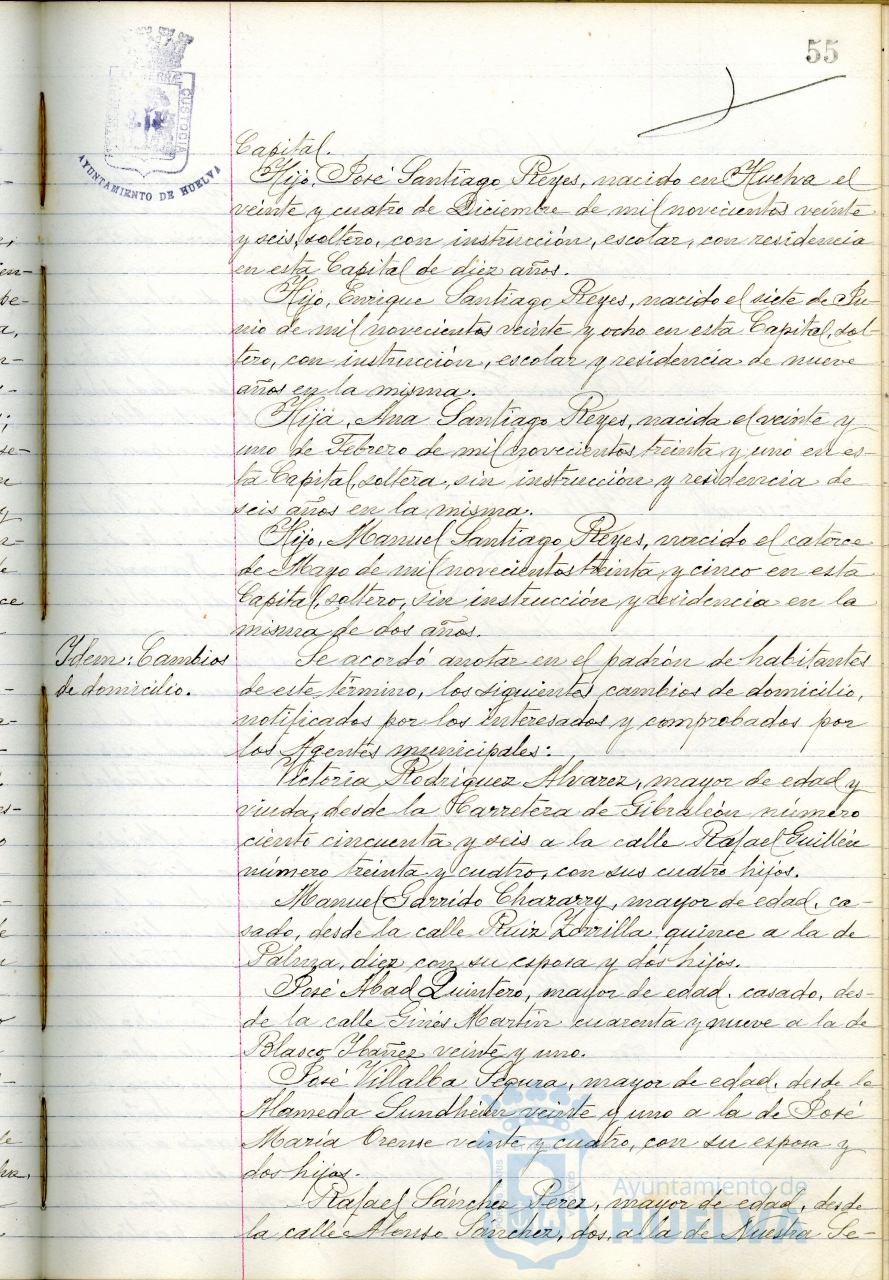 55
AYUNTAMIENTO DE HUELVA
CUSTODIA
Capital.
Hijo, José Santiago Reyes, nacido en Huelva el
veinte y cuatro de Diciembre de mil novecientos veinte
y seis, soltero, con instrucción, escolar, con residencia
en esta Capital de diez años.
Hijo, Enrique Santiago Reyes, nacido el siete de Ju-
nio de mil novecientos veinte y ocho en esta Capital, sol-
tero, con instrucción, escolar y residencia de nueve
años en la misma.
Hija, Ana Santiago Reyes, nacida el veinte y
uno de Febrero de mil novecientos treinta y uno en es-
ta Capital, soltera, sin instrucción y residencia de
seis años en la misma.
Hijo, Manuel Santiago Reyes, nacido el catorce
de Mayo de mil novecientos treinta y cinco en esta
Capital, soltero, sin instrucción y residencia en la
misma de dos años.
Idem: Cambios
de domicilio.
Se acordó anotar en el padrón de habitantes
de este término, los siguientes cambios de domicilio,
notificados por los interesados y comprobados por
los Agentes municipales:
Victoria Rodríguez Alvarez, mayor de edad y
viuda, desde la Carretera de Gibraleón número
ciento cincuenta y seis a la calle Rafael Guillén
número treinta y cuatro, con sus cuatro hijos.
Manuel Garrido Chazarry, mayor de edad, ca-
sado, desde la calle Ruiz Zorrilla quince a la de
Palma, diez con su esposa y dos hijos.
José Abad Quintero, mayor de edad, casado, des-
de la calle Ginés Martín cuarenta y nueve a la de
Blasco Ibañez veinte y uno.
José Villalba Segura, mayor de edad, desde la
Alameda Sundheim veinte y uno a la de José
María Orense veinte y cuatro, con su esposa y
dos hijos.
Rafael Sánchez Pérez, mayor de edad, desde
la calle Alonso Sánchez, dos, a la de Nuestra Se-
Ayuntamiento de
HUELVA